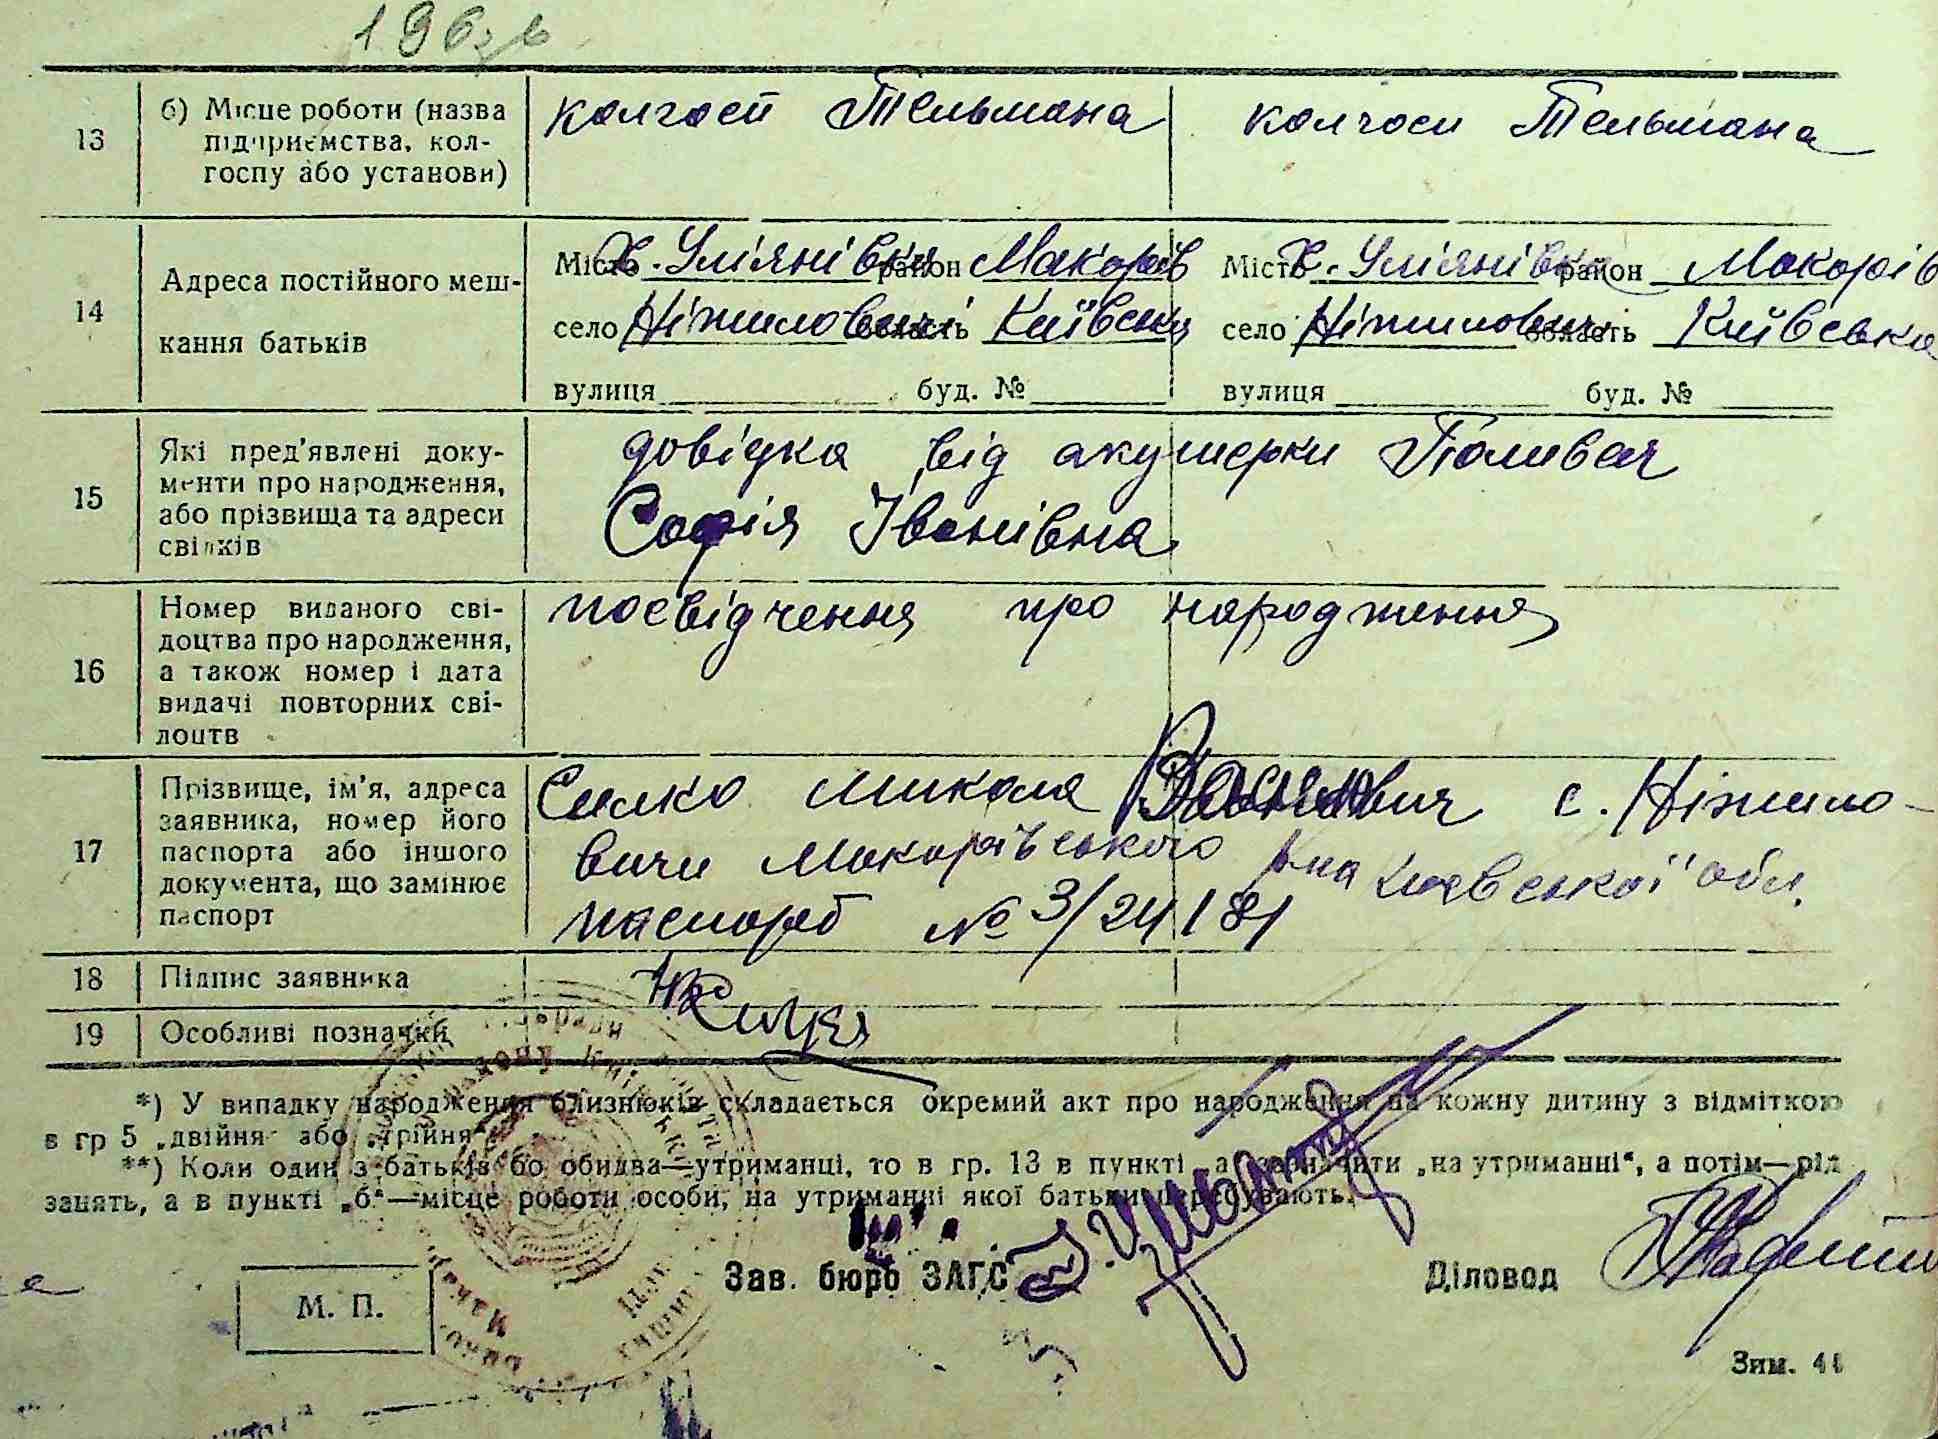 13 б) Місце роботи (назва підприємства, колгоспу або установи) колгосп Тельмана колгосп Тельмана
14 Адреса постійного мешкання батьків
Місто Х. Уліянівка район Макорів Місто Х. Уліянівка район Макорів
село Ніжиловичі область Київська село Ніжиловичі область Київська
вулиця буд. № вулиця буд. №
15 Які пред'явлені документи про народження, або прізвища та адреси свідків
довідка від акушерки Поливач
Софія Іванівна
16 Номер виданого свідоцтва про народження, а також номер і дата видачі повторних свідоцтв
посвідчення про народження
17 Прізвище, ім'я, адреса заявника, номер його паспорта або іншого документа, що замінює паспорт
Силко Микола с. Ніжило-
вичи Макорівського р-на Києвської обл.
паспорт № 3/24181
18 Підпис заявника
19 Особливі позначки
*) У випадку народження близнюків складається окремий акт про народження на кожну дитину з відміткою
в гр 5 „двійня" або „трійня"
**) Коли один з батьків бо обидва—утриманці, то в гр. 13 в пункті „а" зазначити „на утриманні", а потім—рід
занять, а в пункті „б"—місце роботи особи, на утриманні якої батьки перебувають.
Зав. бюро ЗАГС Діловод
М. П.
Зим. 44